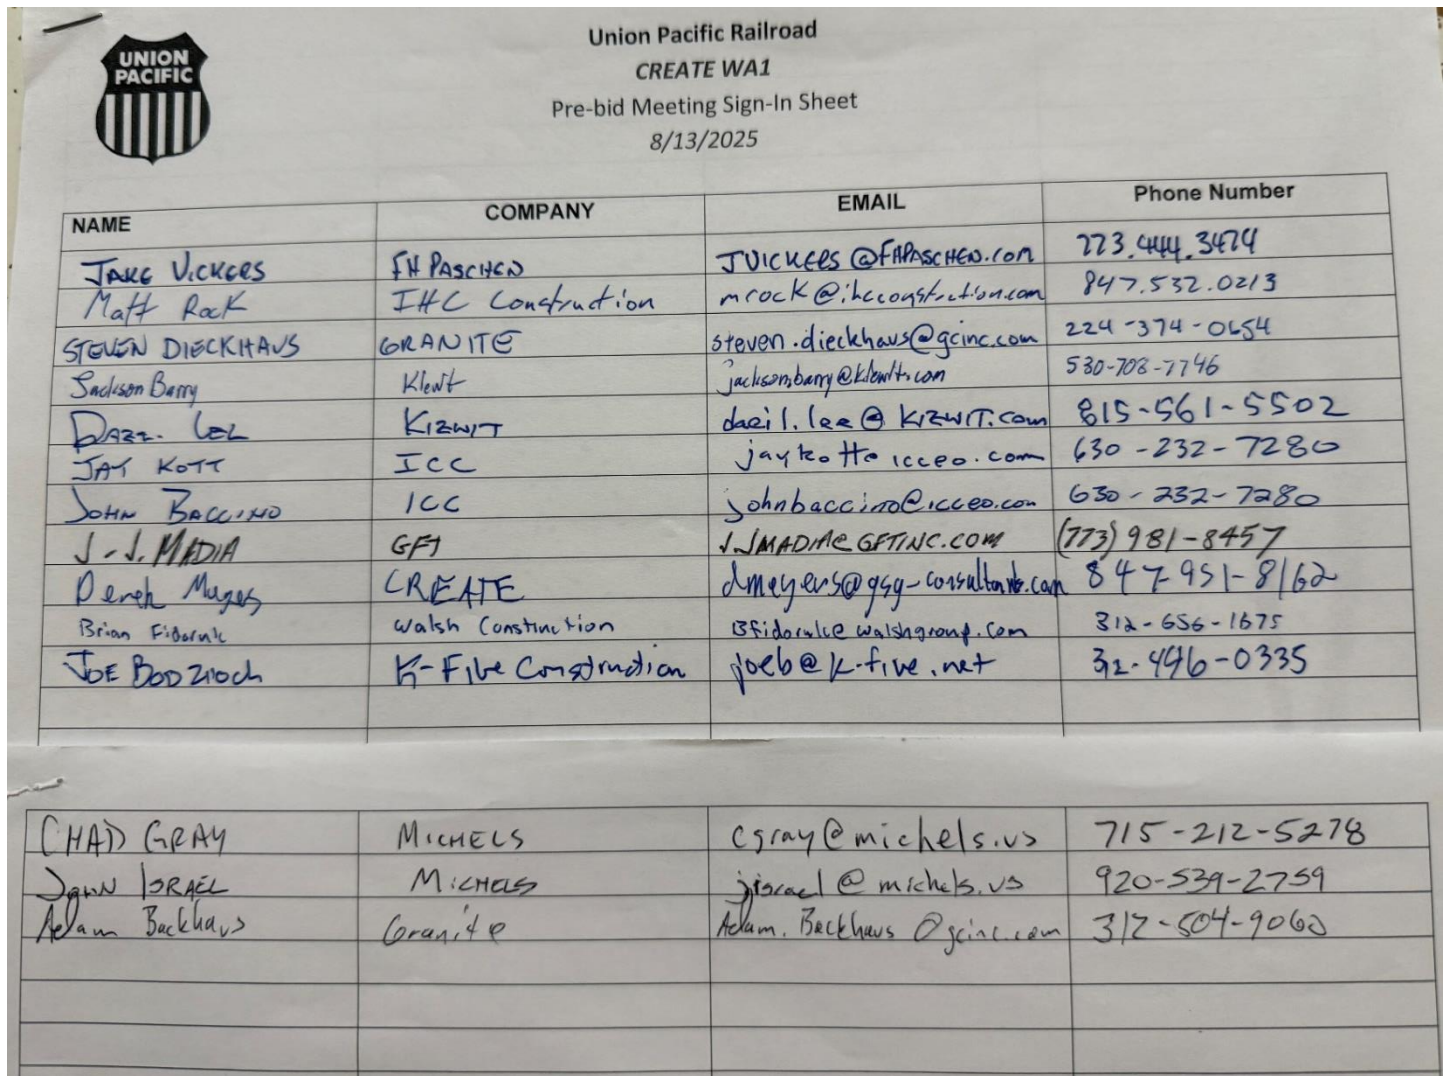 UNION
PACIFIC
Union Pacific Railroad
CREATE WA1
Pre-bid Meeting Sign-In Sheet
8/13/2025
NAME COMPANY EMAIL Phone Number
JAKE VICKERS FH PASCHEN JVICKERS@FHPASCHEN.com 773.444.3474
Matt Rock IHC Construction mrock@ihcconstruction.com 847.532.0213
STEVEN DIECKHAUS GRANITE steven.dieckhaus@gcinc.com 224-374-0654
Jackson Barry Kiewit jackson.barry@kiewit.com 530-708-7746
KIEWIT 815-561-5502
JAY KOTT ICC jaykott@icceo.com 630-232-7280
JOHN BACCINO ICC johnbaccino@icceo.com 630-232-7280
J.J. MADIA GFT JJMADIA@GFTINC.COM (773) 981-8457
Derek CREATE dmeyers@gsg-consultants.com 847-951-8162
Brian Walsh Construction 312-656-1675
JOE BODZIOCH K-Five Construction joeb@k-five.net 312-446-0335
CHAD GRAY MICHELS cgray@michels.us 715-212-5278
JOHN ISRAEL MICHELS jisrael@michels.us 920-539-2759
Adam Backhaus Granite Adam.Backhaus@gcinc.com 312-504-9060